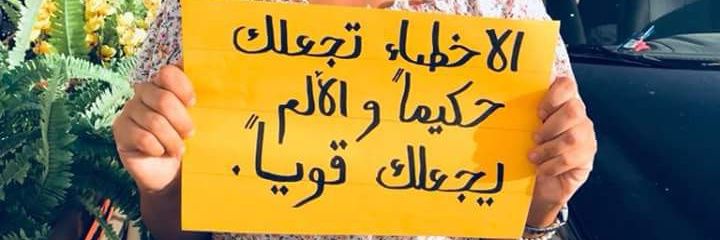 الاخطاء تجعلك
حكيماً والألم
يجعلك قوياً.